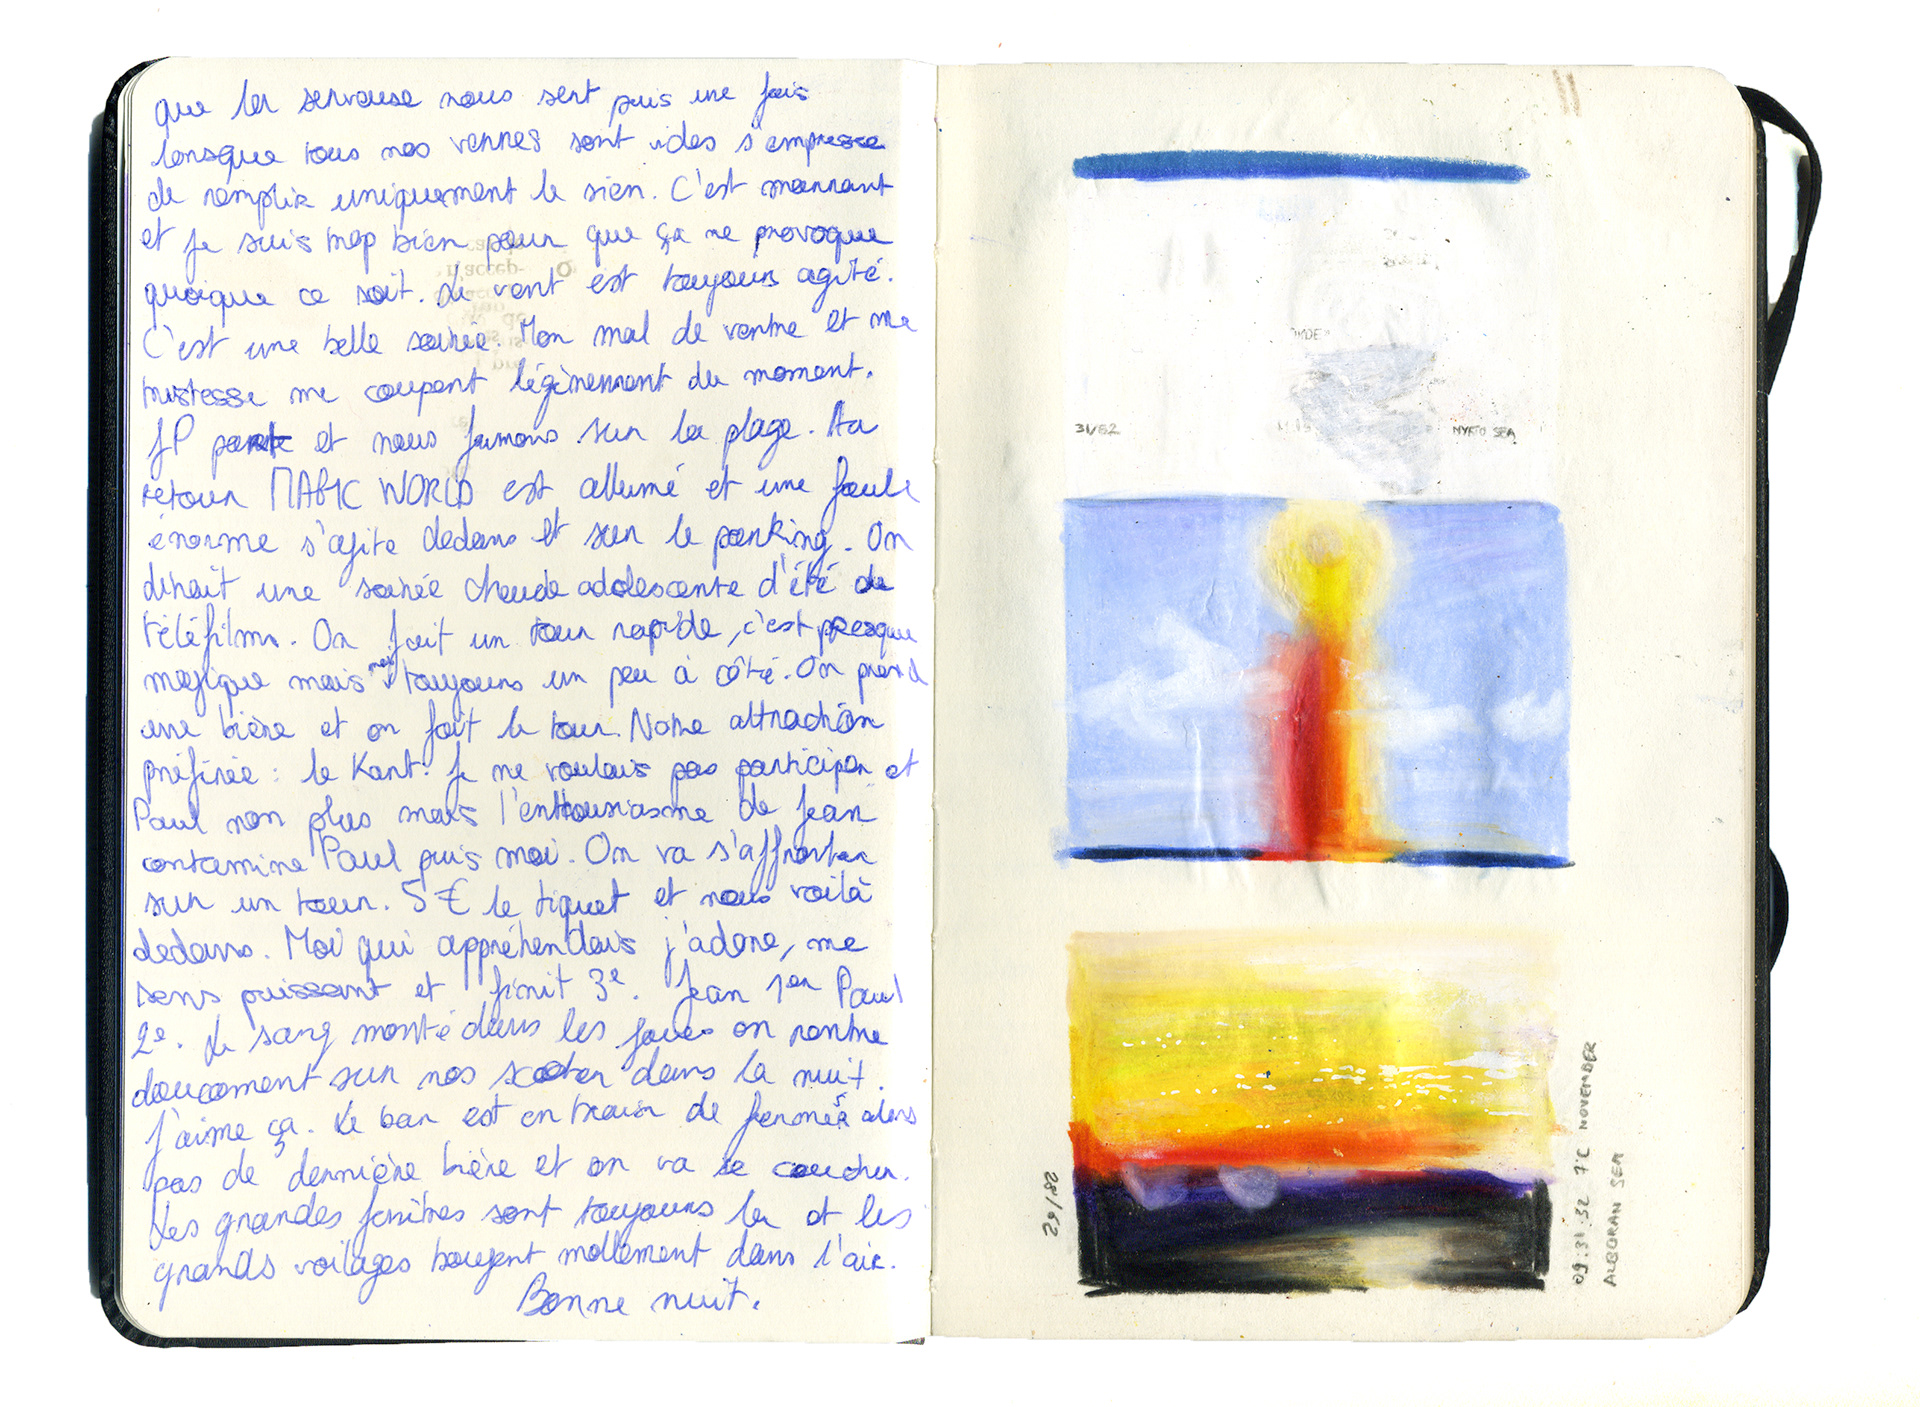 que la serveuse nous sert puis une fois
lorsque tous nos verres sont vides s'empresse
de remplir uniquement le sien. C'est marrant
et je suis trop bien pour que ça ne provoque
quoique ce soit. Le vent est toujours agité.
C'est une belle soirée. Mon mal de ventre et ma
tristesse me coupent légèrement du moment.
JP part et nous fumons sur la plage. Au
retour MAGIC WORLD est allumé et une foule
énorme s'agite dedans et sur le parking. On
dirait une soirée chaude adolescente d'été de
téléfilms. On fait un tour rapide, c'est presque
magique mais toujours un peu à côté. On prend
une bière et on fait le tour. Notre attraction
préférée : le Kart. Je ne voulais pas participer et
Paul non plus mais l'enthousiasme de Jean
contamine Paul puis moi. On va s'affronter
sur un tour. 5 € le tiquet et nous voilà
dedans. Moi qui appréhendais j'adore, me
sens puissant et finit 3e. Jean 1er Paul
2e. Le sang monté dans les joues on rentre
doucement sur nos scooter dans la nuit.
J'aime ça. Le bar est en train de fermer alors
pas de dernière bière et on va se coucher.
Les grandes fenêtres sont toujours là et les
grands voilages bougent mollement dans l'air.
Bonne nuit.
31/62
MYRTO SEA
29/82
09:31:32 7°C NOVEMBER
ALBORAN SEA